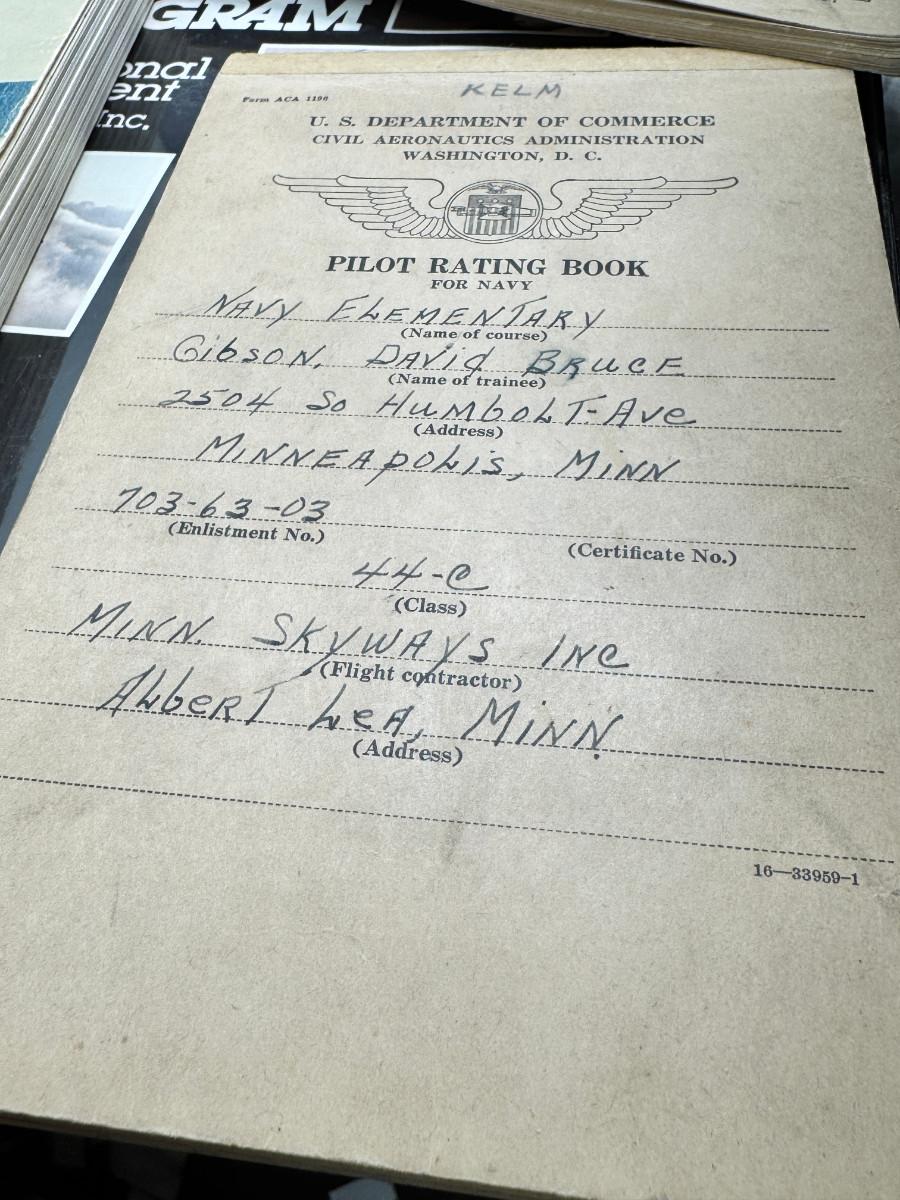 GRAM
onal
ent
Inc.
KELM
Form ACA 1196
U. S. DEPARTMENT OF COMMERCE
CIVIL AERONAUTICS ADMINISTRATION
WASHINGTON, D. C.
PILOT RATING BOOK
FOR NAVY
NAVY ELEMENTARY
(Name of course)
Gibson, David Bruce
(Name of trainee)
2504 So Humbolt-Ave
(Address)
Minneapolis, Minn
703-63-03
(Enlistment No.) (Certificate No.)
44-C
(Class)
Minn. Skyways Inc
(Flight contractor)
Albert Lea, Minn.
(Address)
16—33959-1